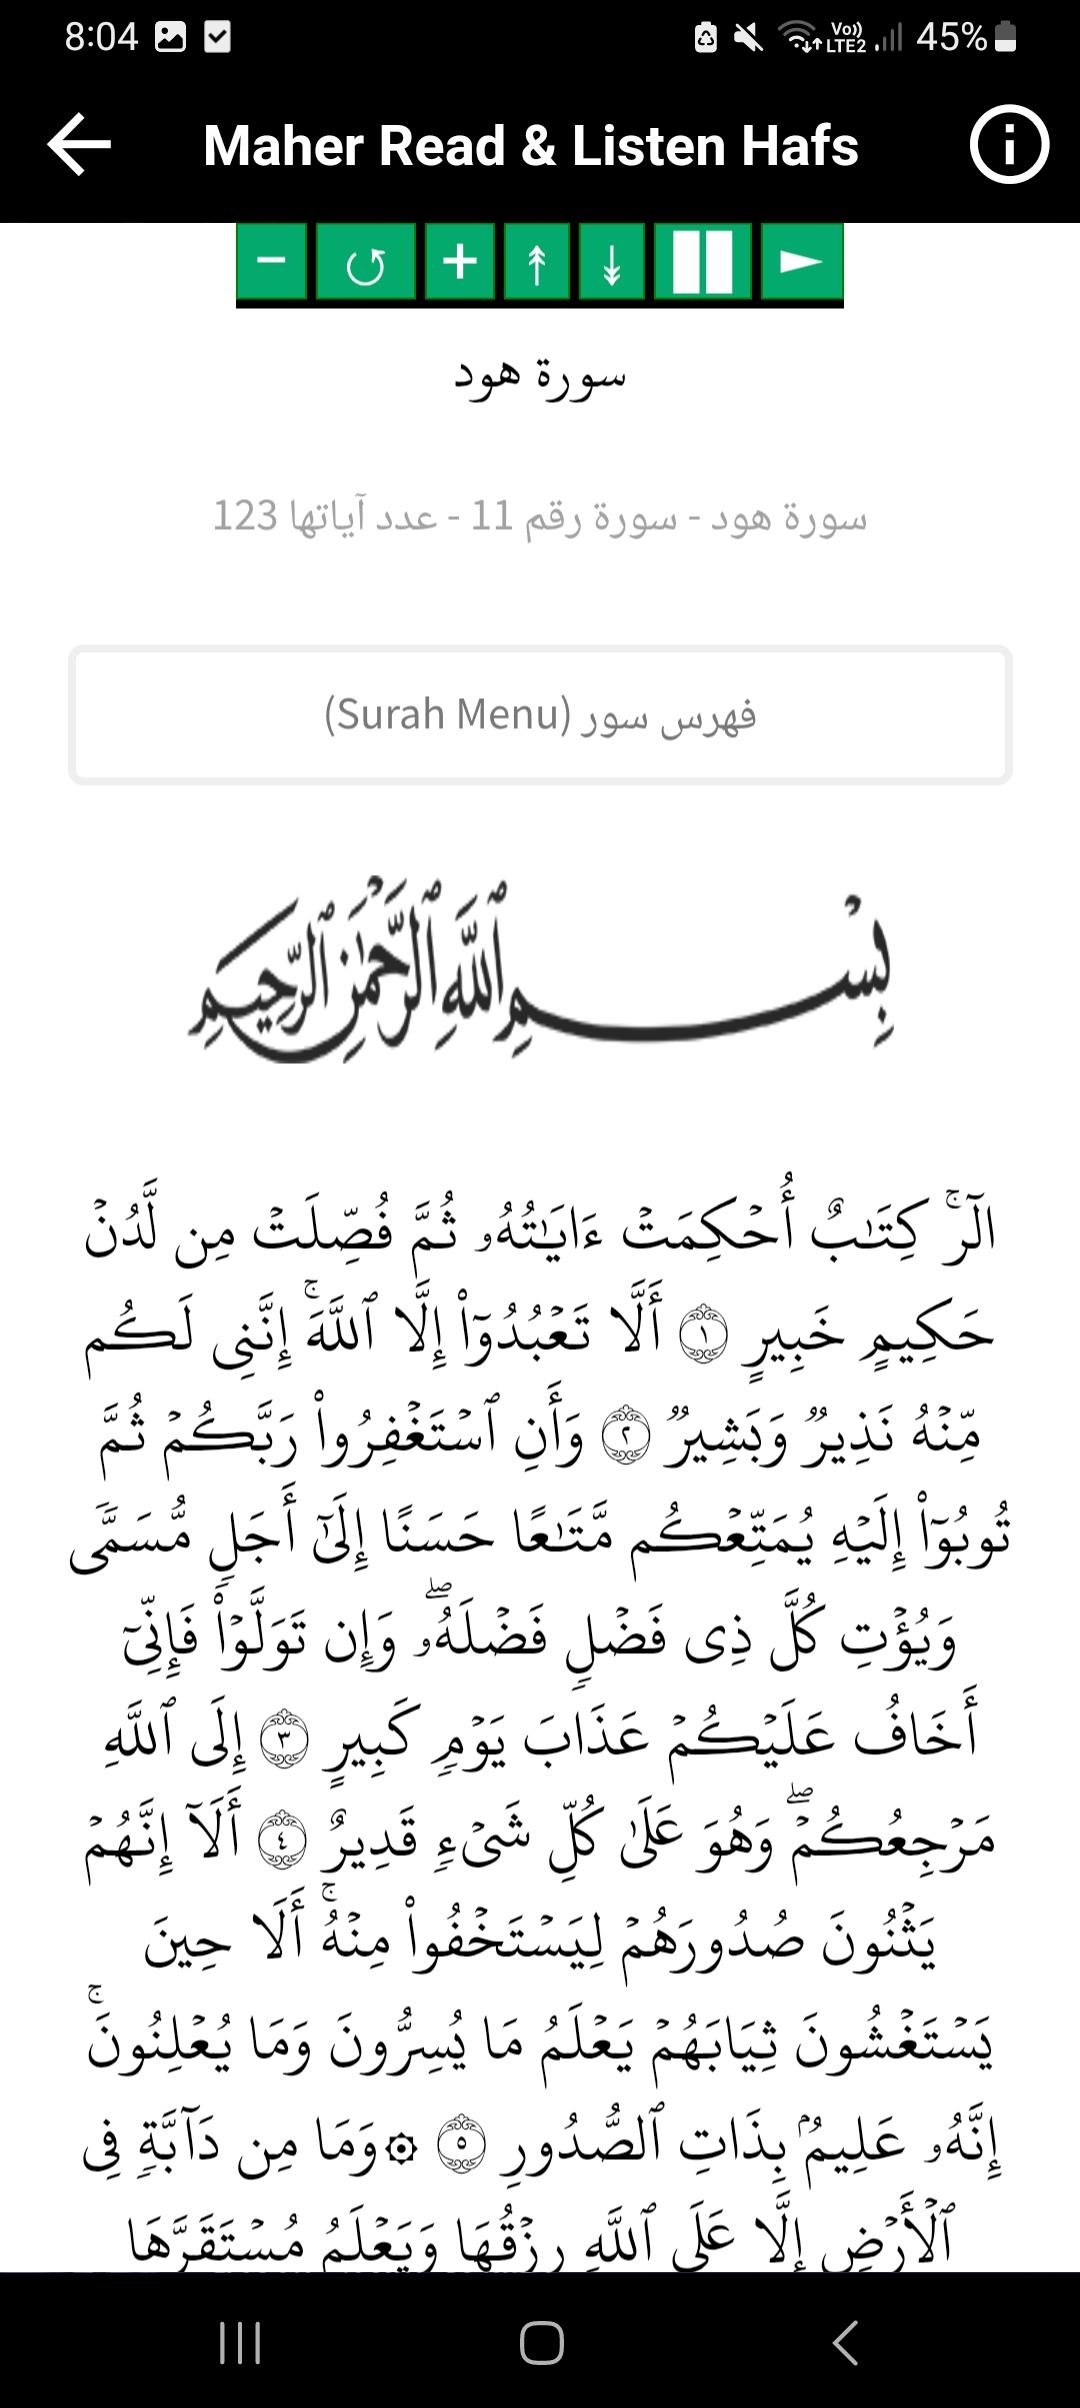 8:04
Vo)) LTE2 45%
Maher Read & Listen Hafs
سورة هود
سورة هود - سورة رقم 11 - عدد آياتها 123
فهرس سور (Surah Menu)
بِسْمِ ٱللَّهِ ٱلرَّحْمَٰنِ ٱلرَّحِيمِ
الٓرۚ كِتَٰبٌ أُحۡكِمَتۡ ءَايَٰتُهُۥ ثُمَّ فُصِّلَتۡ مِن لَّدُنۡ
حَكِيمٍ خَبِيرٍ ١ أَلَّا تَعۡبُدُوٓاْ إِلَّا ٱللَّهَۚ إِنَّنِي لَكُم
مِّنۡهُ نَذِيرٞ وَبَشِيرٞ ٢ وَأَنِ ٱسۡتَغۡفِرُواْ رَبَّكُمۡ ثُمَّ
تُوبُوٓاْ إِلَيۡهِ يُمَتِّعۡكُم مَّتَٰعًا حَسَنًا إِلَىٰٓ أَجَلٖ مُّسَمّٗى
وَيُؤۡتِ كُلَّ ذِي فَضۡلٖ فَضۡلَهُۥۖ وَإِن تَوَلَّوۡاْ فَإِنِّيٓ
أَخَافُ عَلَيۡكُمۡ عَذَابَ يَوۡمٖ كَبِيرٍ ٣ إِلَى ٱللَّهِ
مَرۡجِعُكُمۡۖ وَهُوَ عَلَىٰ كُلِّ شَيۡءٖ قَدِيرٌ ٤ أَلَآ إِنَّهُمۡ
يَثۡنُونَ صُدُورَهُمۡ لِيَسۡتَخۡفُواْ مِنۡهُۚ أَلَا حِينَ
يَسۡتَغۡشُونَ ثِيَابَهُمۡ يَعۡلَمُ مَا يُسِرُّونَ وَمَا يُعۡلِنُونَۚ
إِنَّهُۥ عَلِيمُۢ بِذَاتِ ٱلصُّدُورِ ٥ ۞وَمَا مِن دَآبَّةٖ فِي
ٱلۡأَرۡضِ إِلَّا عَلَى ٱللَّهِ رِزۡقُهَا وَيَعۡلَمُ مُسۡتَقَرَّهَا